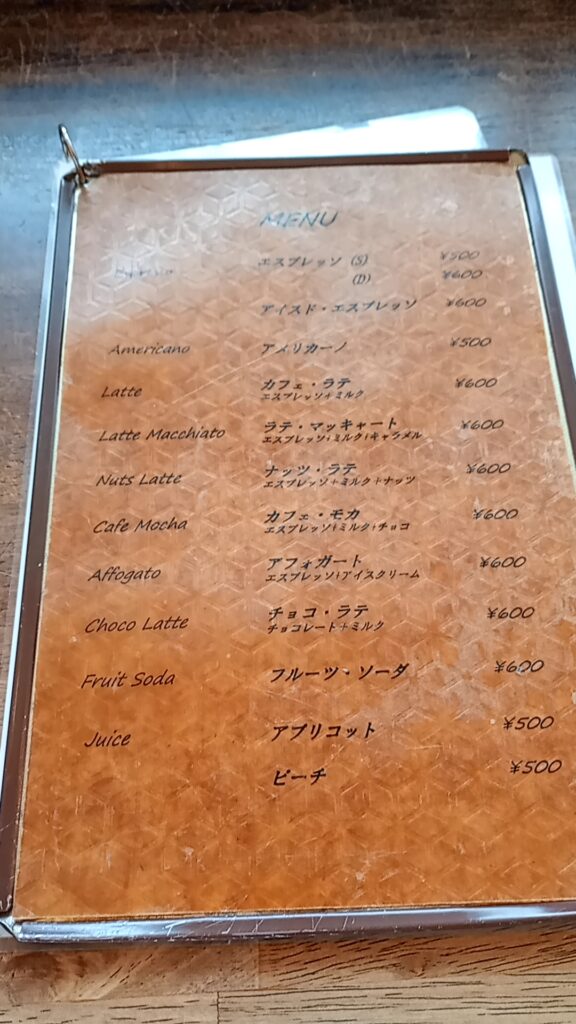 MENU
Espresso エスプレッソ (S) ¥500
(D) ¥600
アイスド・エスプレッソ ¥600
Americano アメリカーノ ¥500
Latte カフェ・ラテ ¥600
エスプレッソ+ミルク
Latte Macchiato ラテ・マッキャート ¥600
エスプレッソ+ミルク+キャラメル
Nuts Latte ナッツ・ラテ ¥600
エスプレッソ+ミルク+ナッツ
Cafe Mocha カフェ・モカ ¥600
エスプレッソ+ミルク+チョコ
Affogato アフォガート ¥600
エスプレッソ+アイスクリーム
Choco Latte チョコ・ラテ ¥600
チョコレート+ミルク
Fruit Soda フルーツ・ソーダ ¥600
Juice アプリコット ¥500
ピーチ ¥500